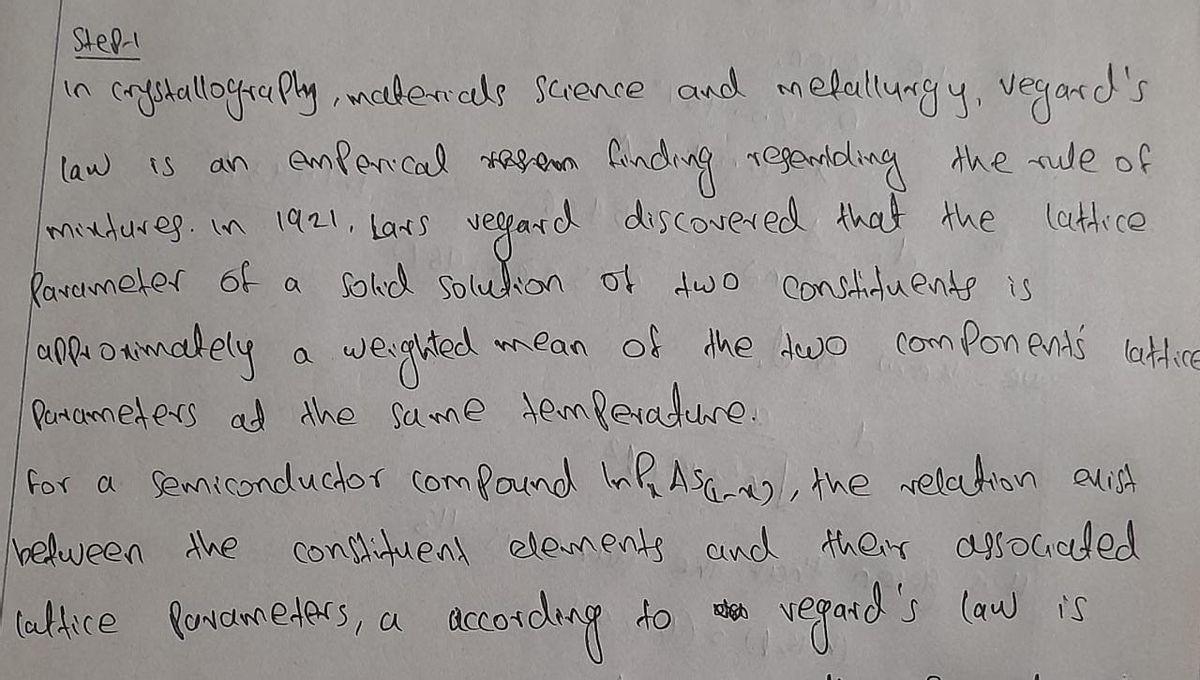 Step-1
in crystallography, materials science and metallurgy, vegard's
law is an emperical finding regerlding the rule of
mixtures. in 1921, Lars vegard discovered that the lattice
Parameter of a solid solution of two constituents is
approximately a weighted mean of the two components' lattice
Parameters at the same temperature.
For a semiconductor compound InPₓ As(1-x), the relation exist
between the constituent elements and their associated
lattice Parameters, a according to vegard's law is